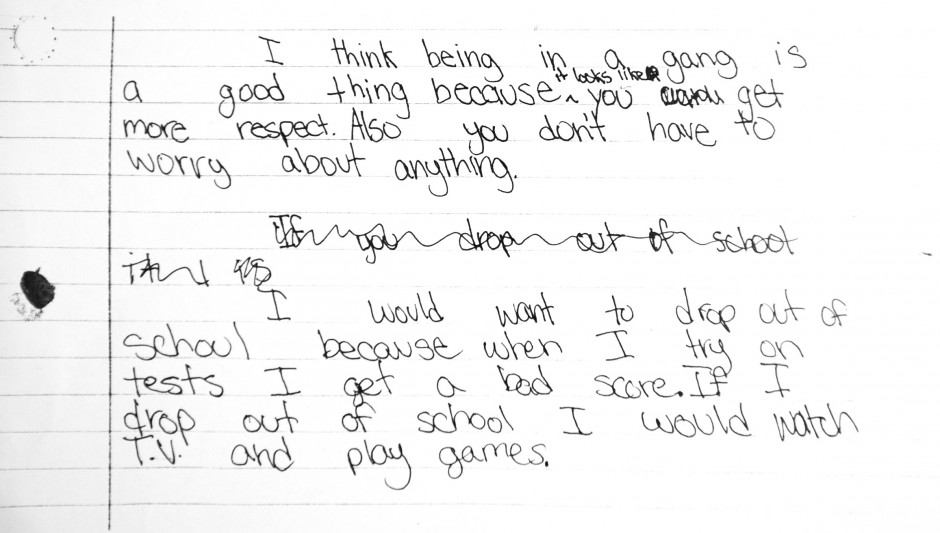 I think being in a gang is
a good thing because it looks like you get
more respect. Also you don't have to
worry about anything.
If you drop out of school
I would want to drop out of
school because when I try on
tests I get a bad score. If I
drop out of school I would watch
T.V. and play games.